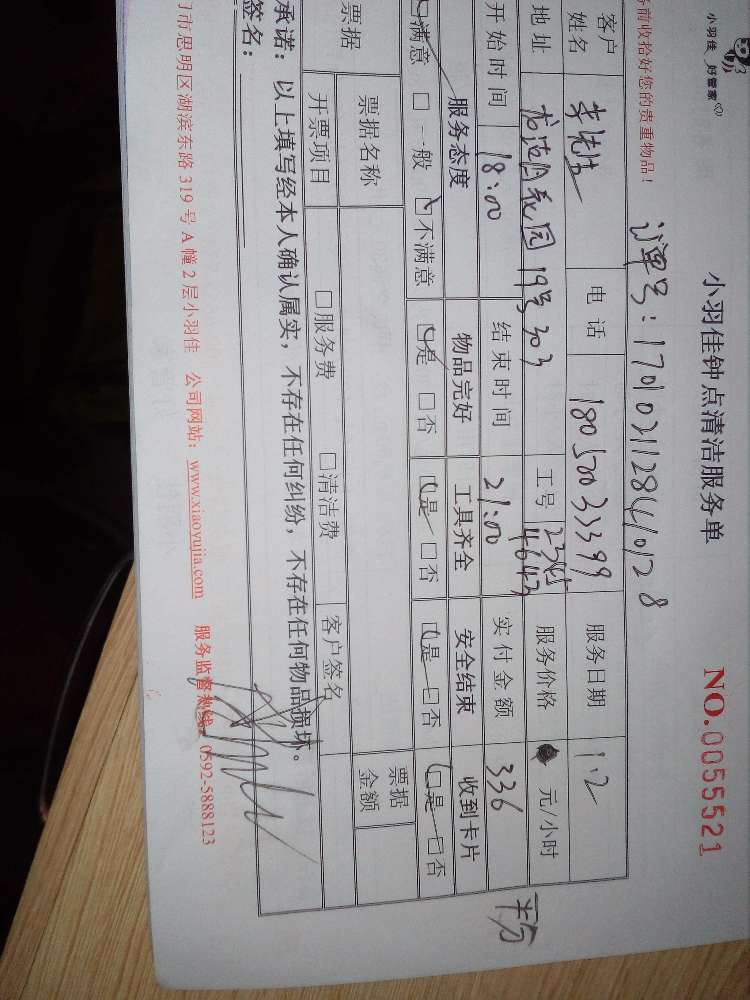 小羽佳 好管家
小羽佳钟点清洁服务单 NO.0055521
前收拾好您的贵重物品！ 订单号：
客户姓名 李先生 电话 18050033399 服务日期 1.2
地址 19号303 工号 服务价格 元/小时
开始时间 18:00 结束时间 21:00 实付金额 336 平方
服务态度 物品完好 工具齐全 安全结束 收到卡片
□满意 □一般 □不满意 □是 □否 □是 □否 □是 □否 □是 □否
票据 票据名称 票据金额
开票项目 □服务费 □清洁费 客户签名
承诺：以上填写经本人确认属实，不存在任何纠纷，不存在任何物品损坏。
签名：
门市思明区湖滨东路319号A幢2层小羽佳 公司网站：www.xiaoyujia.com 服务监督热线：0592-5888123